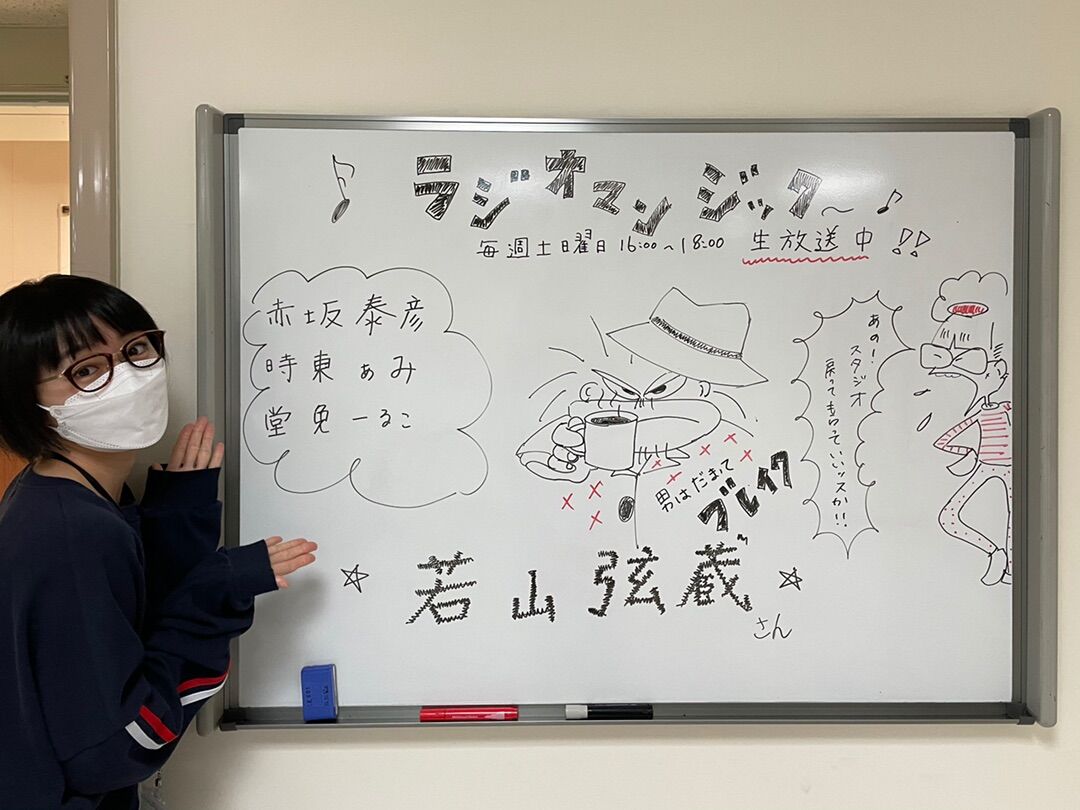 ♪ ラジオマンジック~ ♪
毎週土曜日 16:00~18:00 生放送中!!
赤坂泰彦
時東ぁみ
堂免一るこ
あの!
スタジオ
戻ってもらっていいッスか!!
男はだまって
ブレイク
☆ 若山弦蔵 ☆
さん